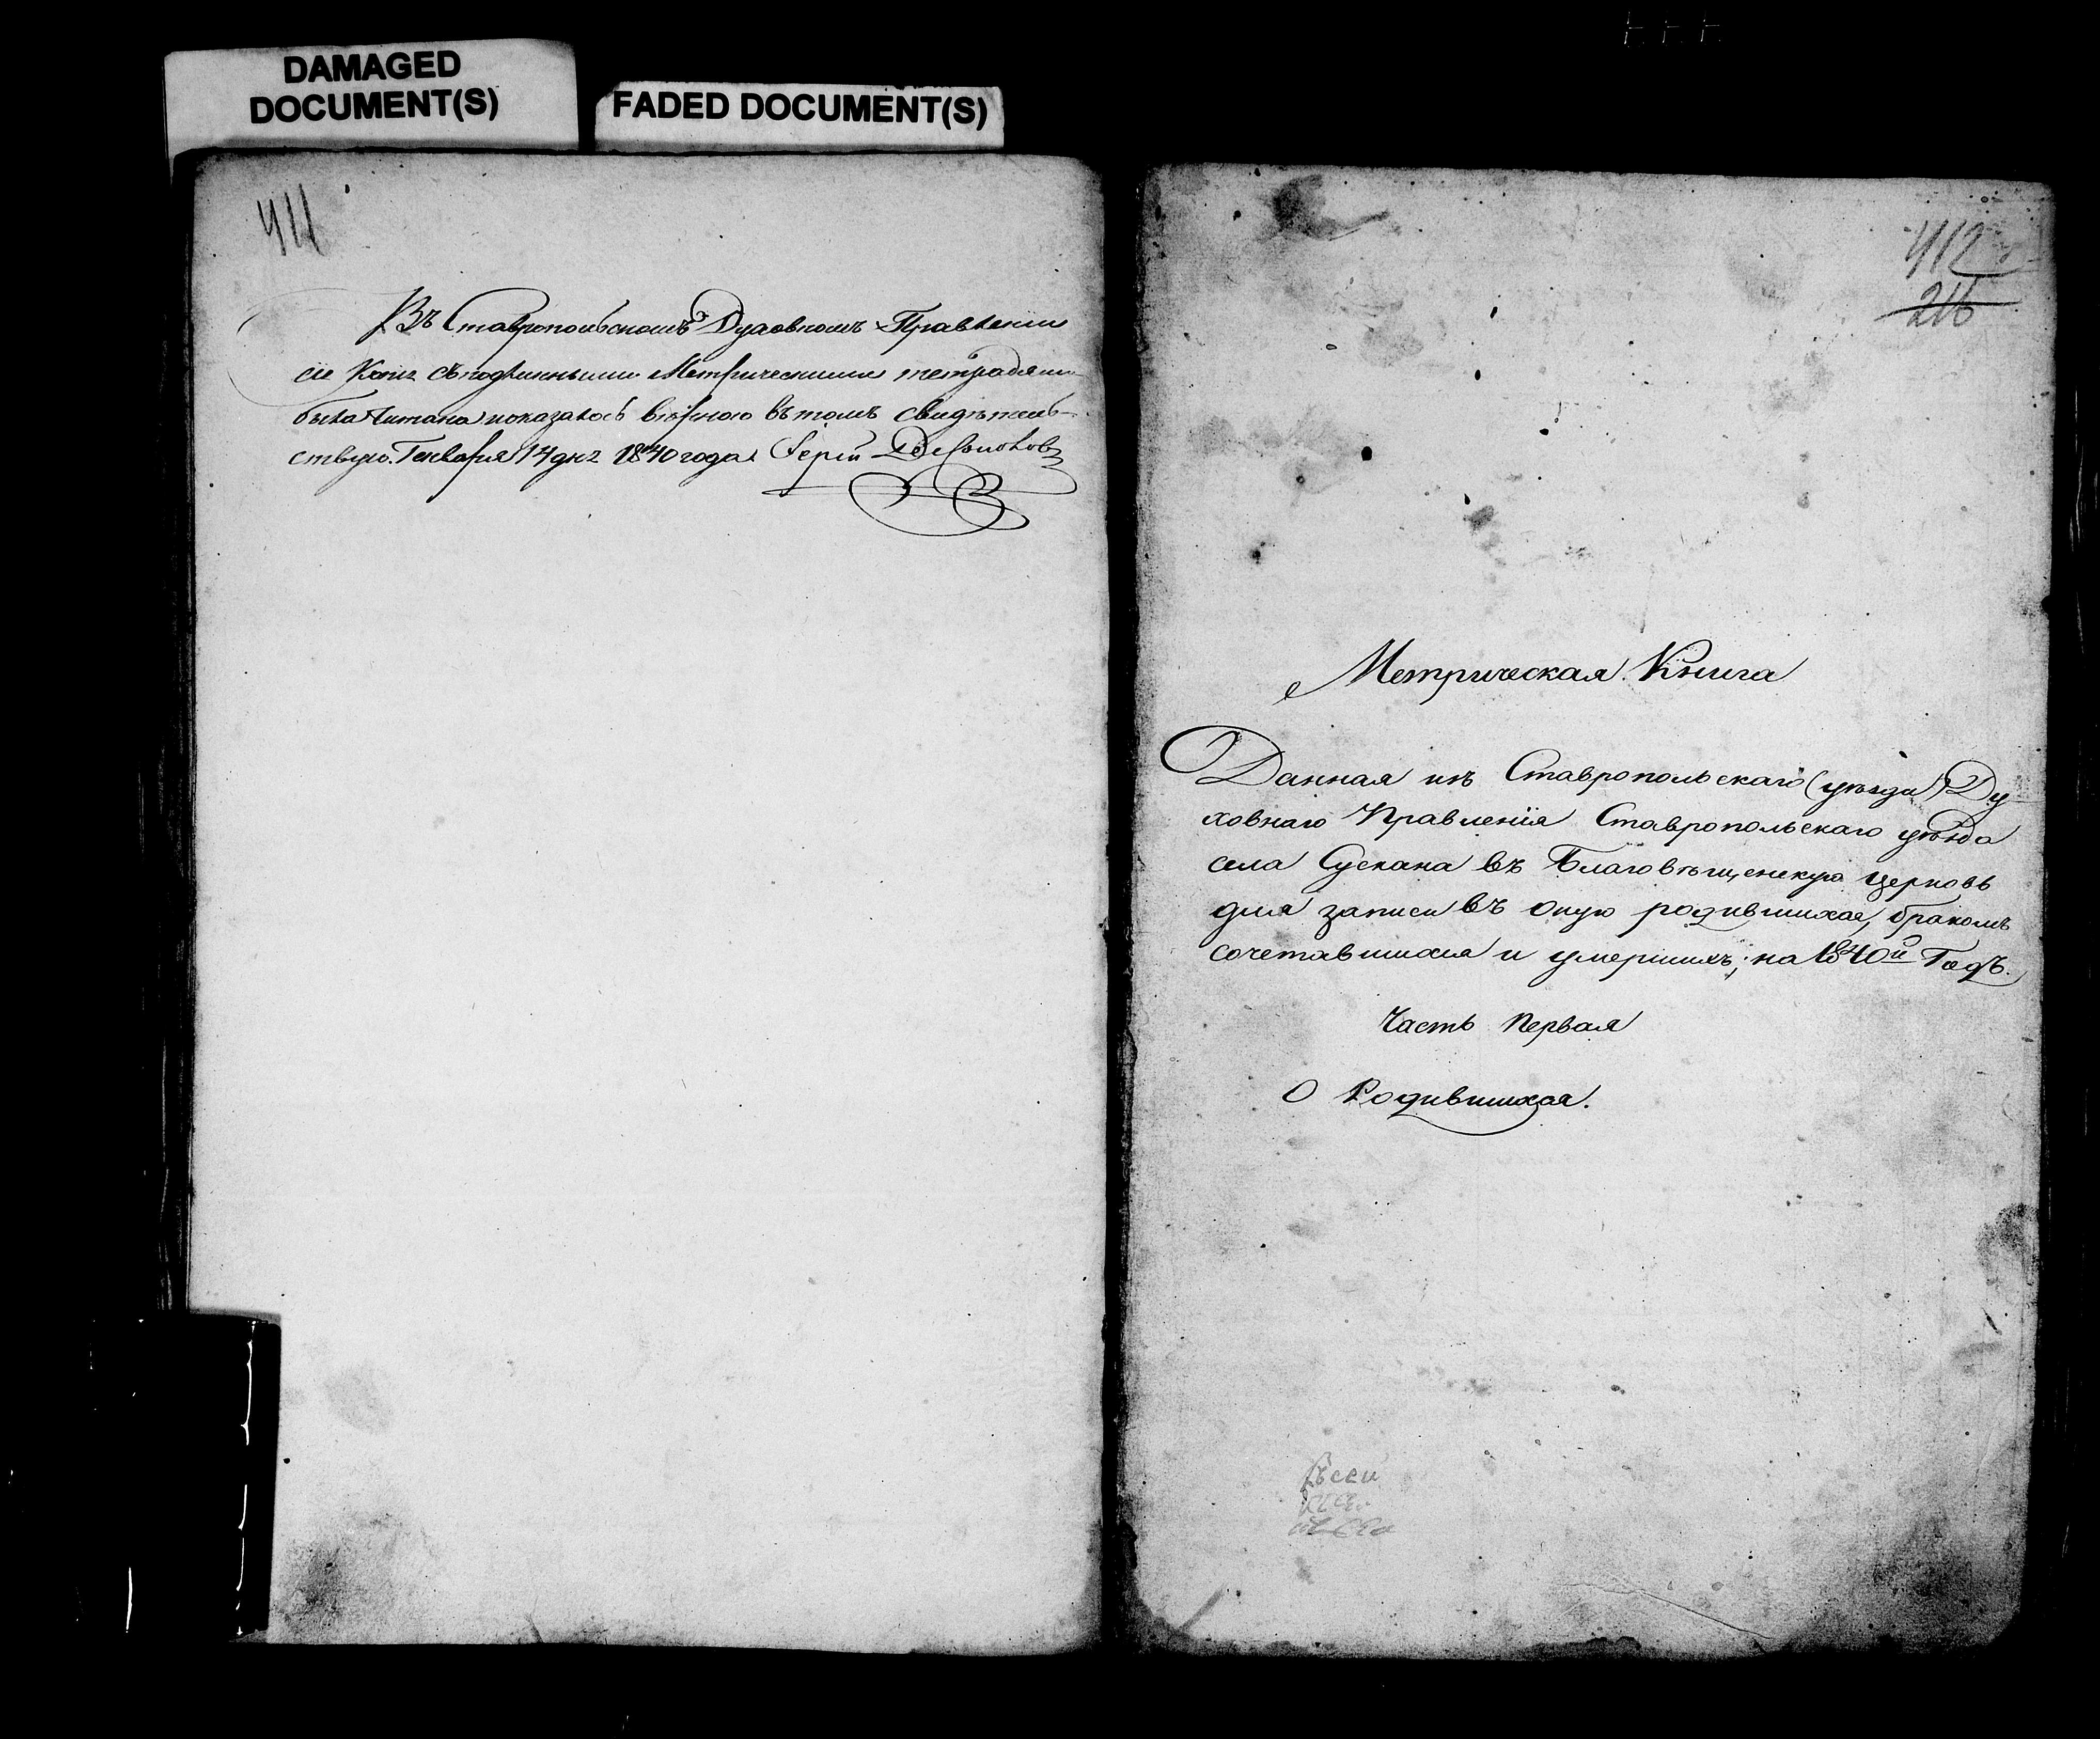 DAMAGED
DOCUMENT(S)
FADED DOCUMENT(S)
411
Въ Ставропольскомъ Духовномъ Правленіи
сіе Копiя съ подлинными Метрическими тетрадями
была читана и оказалось вѣрною въ томъ свидѣтель-
ствую. Генваря 14 дня 1840 года
412
216
Метрическая Книга
Данная изъ Ставропольскаго (уѣзда) Ду
ховнаго Правленія Ставропольскаго уѣзда
села Сускана въ Благовѣщенскую церковь
для записи въ оную родившихся, бракомъ
сочетавшихся и умершихъ; на 1840й Годъ.
Часть Первая
О Родившихся.
Всеи